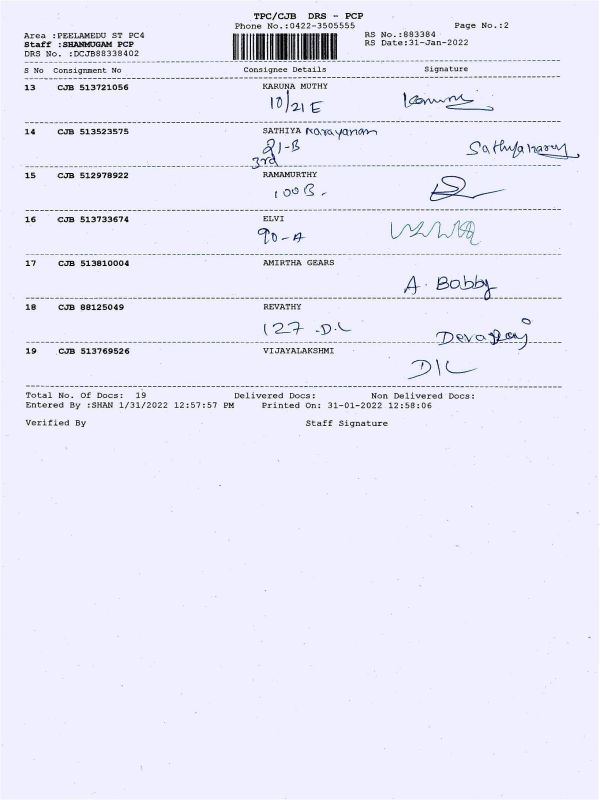 TPC/CJB DRS - PCP
Phone No.:0422-3505555 Page No.:2
Area :PEELAMEDU ST PC4 RS No.:883384
Staff :SHANMUGAM PCP RS Date:31-Jan-2022
DRS No. :DCJB88338402
S No Consignment No Consignee Details Signature
13 CJB 513721056 KARUNA MUTHY
10/21 E
14 CJB 513523575 SATHIYA Narayanan
21-B Sathyanaray
3rd
15 CJB 512978922 RAMAMURTHY
100B.
16 CJB 513733674 ELVI
90-A
17 CJB 513810004 AMIRTHA GEARS
A. Bobby
18 CJB 88125049 REVATHY
127 .D.L Devaraj
19 CJB 513769526 VIJAYALAKSHMI
D/L
Total No. Of Docs: 19 Delivered Docs: Non Delivered Docs:
Entered By :SHAN 1/31/2022 12:57:57 PM Printed On: 31-01-2022 12:58:06
Verified By Staff Signature